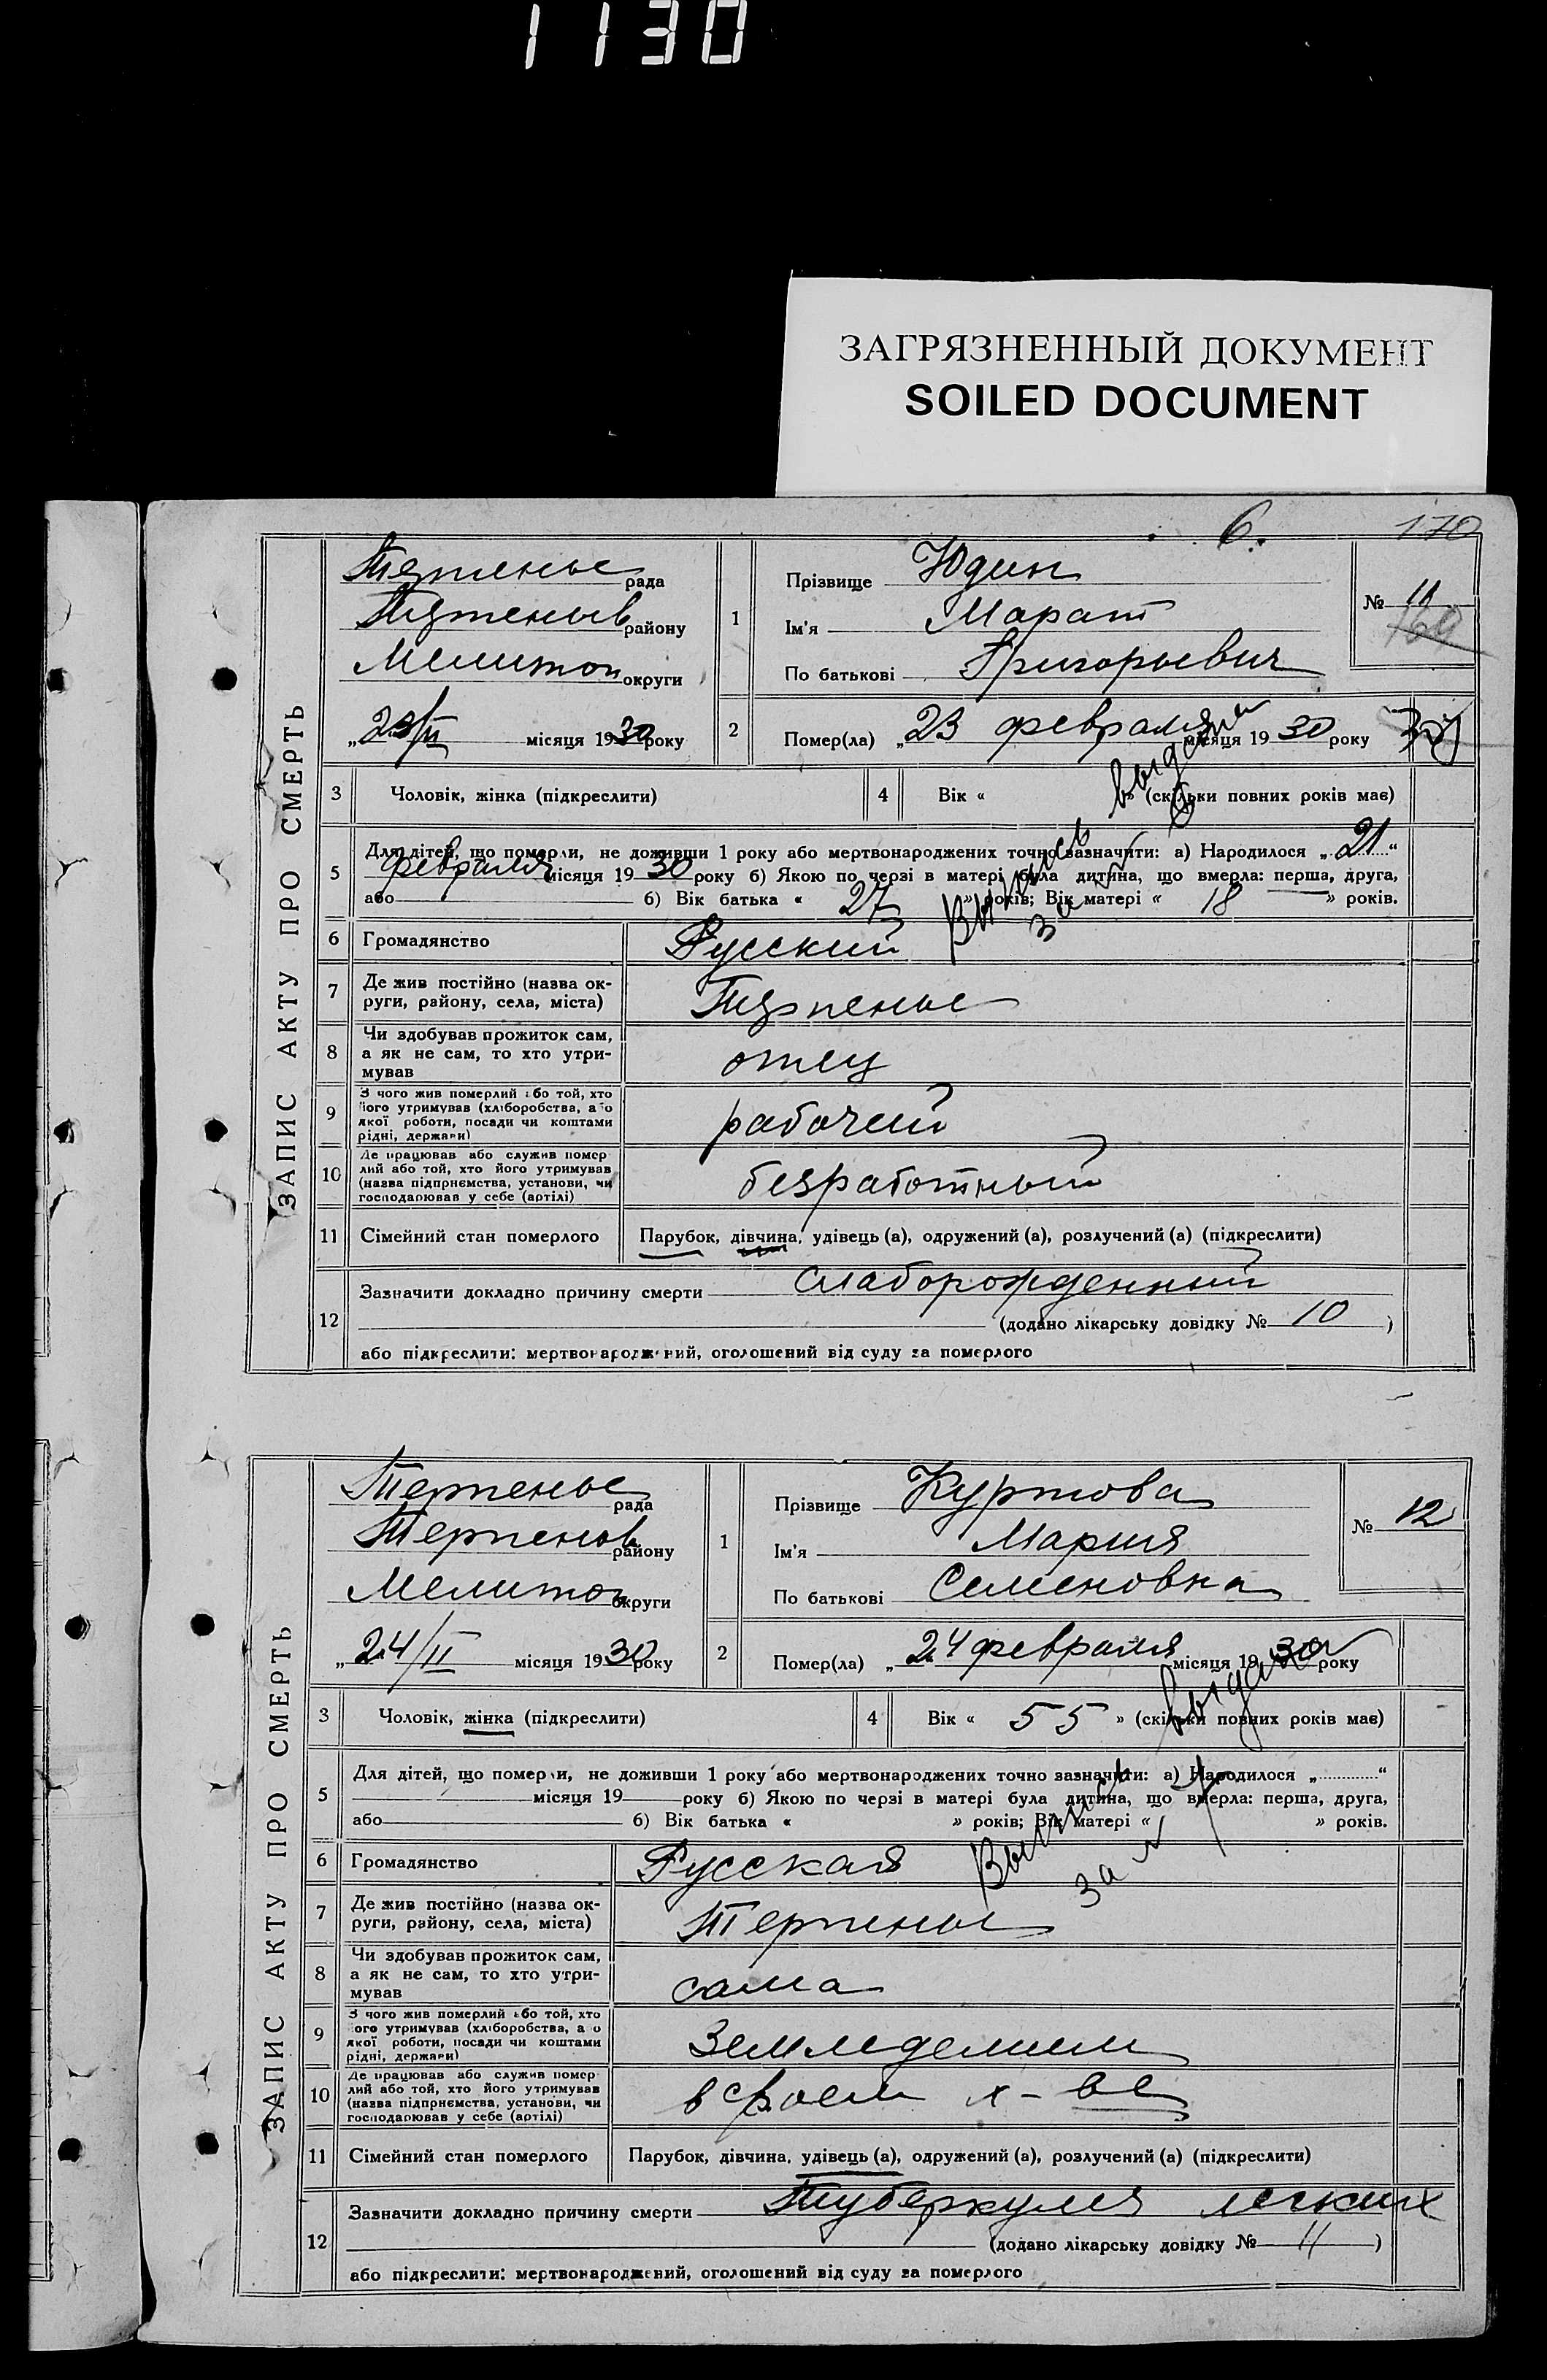 1130
ЗАГРЯЗНЕННЫЙ ДОКУМЕНТ
SOILED DOCUMENT
6.
170
ЗАПИС АКТУ ПРО СМЕРТЬ
Терпенье рада
района
Мелитоп округи
„23/II місяця 1930 року
1
Прізвище Юдин
Ім'я Марат
По батькові Григорьевич
№ 11
169
2
Помер(ла) „23 февраля місяця 1930 року
3 Чоловік, жінка (підкреслити)
4 Вік « » (скільки повних років має)
5
Для дітей, що померли, не доживши 1 року або мертвонароджених точно зазначити: а) Народилося „21“
февраля місяця 1930 року б) Якою по черзі в матері була дитина, що вмерла: перша, друга,
або б) Вік батька « 27 » років; Вік матері « 18 » років.
6 Громадянство Русский
7 Де жив постійно (назва ок-
руги, району, села, міста) Терпенье
8 Чи здобував прожиток сам,
а як не сам, то хто утри-
мував отец
9 З чого жив померлий або той, хто
його утримував (хліборобства, або
якої роботи, посади чи коштами
рідні, держави) рабочий
10 Де працював або служив помер
лий або той, хто його утримував
(назва підприємства, установи, чи
господарював у себе (артілі) безработный
11 Сімейний стан померлого Парубок, дівчина, удівець (а), одружений (а), розлучений (а) (підкреслити)
12
Зазначити докладно причину смерти слаборожденный
(додано лікарську довідку № 10 )
або підкреслити: мертвонароджений, оголошений від суду за померлого
Выпись выдана
за №
ЗАПИС АКТУ ПРО СМЕРТЬ
Терпенье рада
Терпенов району
Мелитоп округи
„24/II місяця 1930 року
1
Прізвище Куртова
Ім'я Мария
По батькові Семеновна
№ 12
2
Помер(ла) „24 февраля місяця 1930 року
3 Чоловік, жінка (підкреслити)
4 Вік « 55 » (скільки повних років має)
5
Для дітей, що померли, не доживши 1 року або мертвонароджених точно зазначити: а) Народилося „ “
місяця 19 року б) Якою по черзі в матері була дитина, що вмерла: перша, друга,
або б) Вік батька « » років; Вік матері « » років.
6 Громадянство Русская
7 Де жив постійно (назва ок-
руги, району, села, міста) Терпенье
8 Чи здобував прожиток сам,
а як не сам, то хто утри-
мував сама
9 З чого жив померлий або той, хто
його утримував (хліборобства, або
якої роботи, посади чи коштами
рідні, держави) Земледелием
10 Де працював або служив помер
лий або той, хто його утримував
(назва підприємства, установи, чи
господарював у себе (артілі) в своем х-ве
11 Сімейний стан померлого Парубок, дівчина, удівець (а), одружений (а), розлучений (а) (підкреслити)
12
Зазначити докладно причину смерти Туберкулез легких
(додано лікарську довідку № 11 )
або підкреслити: мертвонароджений, оголошений від суду за померлого
Выпись выдана
за №